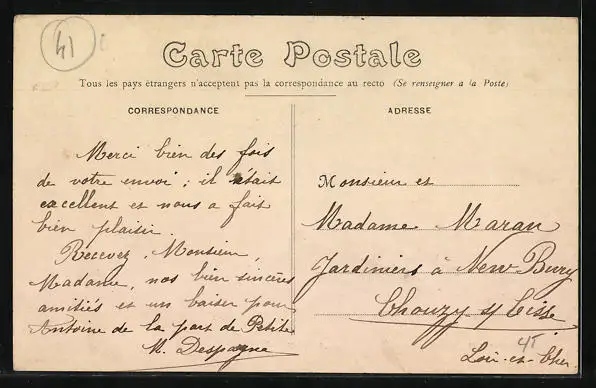 41
Carte Postale
Tous les pays étrangers n'acceptent pas la correspondance au recto (Se renseigner à la Poste)
CORRESPONDANCE
Merci bien des fois
de votre envoi ; il était
excellent et nous a fait
bien plaisir.
Recevez, Monsieur,
Madame, nos bien sincères
amitiés et un baiser pour
Antoine de la part de Petite
M. Despagne
ADRESSE
Monsieur et
Madame Maran
Jardiniers à New Bury
Chouzy s/ Cisse
41
Loir-et-Cher